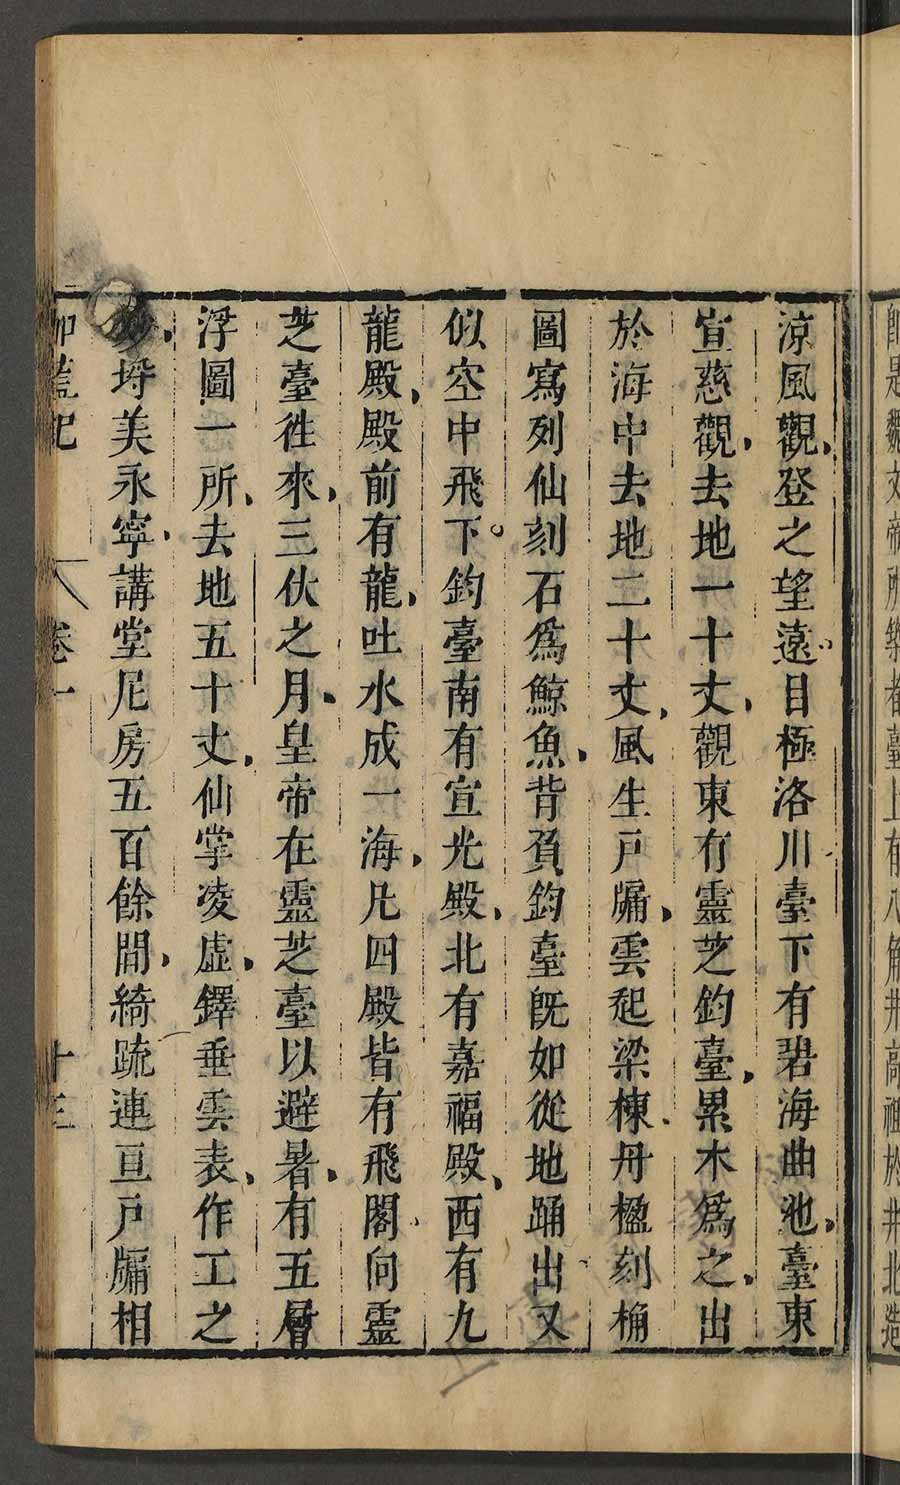 即是魏文帝所築者臺上有八角井高祖於井北造
涼風觀登之望遠目極洛川臺下有碧海曲池臺東
宣慈觀去地一十丈觀東有靈芝釣臺累木爲之出
於海中去地二十丈風生戸牖雲起梁棟丹楹刻桷
圖寫列仙刻石爲鯨魚背負釣臺旣如從地踊出又
似空中飛下釣臺南有宣光殿北有嘉福殿西有九
龍殿殿前有龍吐水成一海凡四殿皆有飛閣向靈
芝臺徃來三伏之月皇帝在靈芝臺以避暑有五層
浮圖一所去地五十丈仙掌凌虛鐸垂雲表作工之
妙埒美永寧講堂尼房五百餘間綺疏連亘戸牖相
伽藍記 卷一 十三